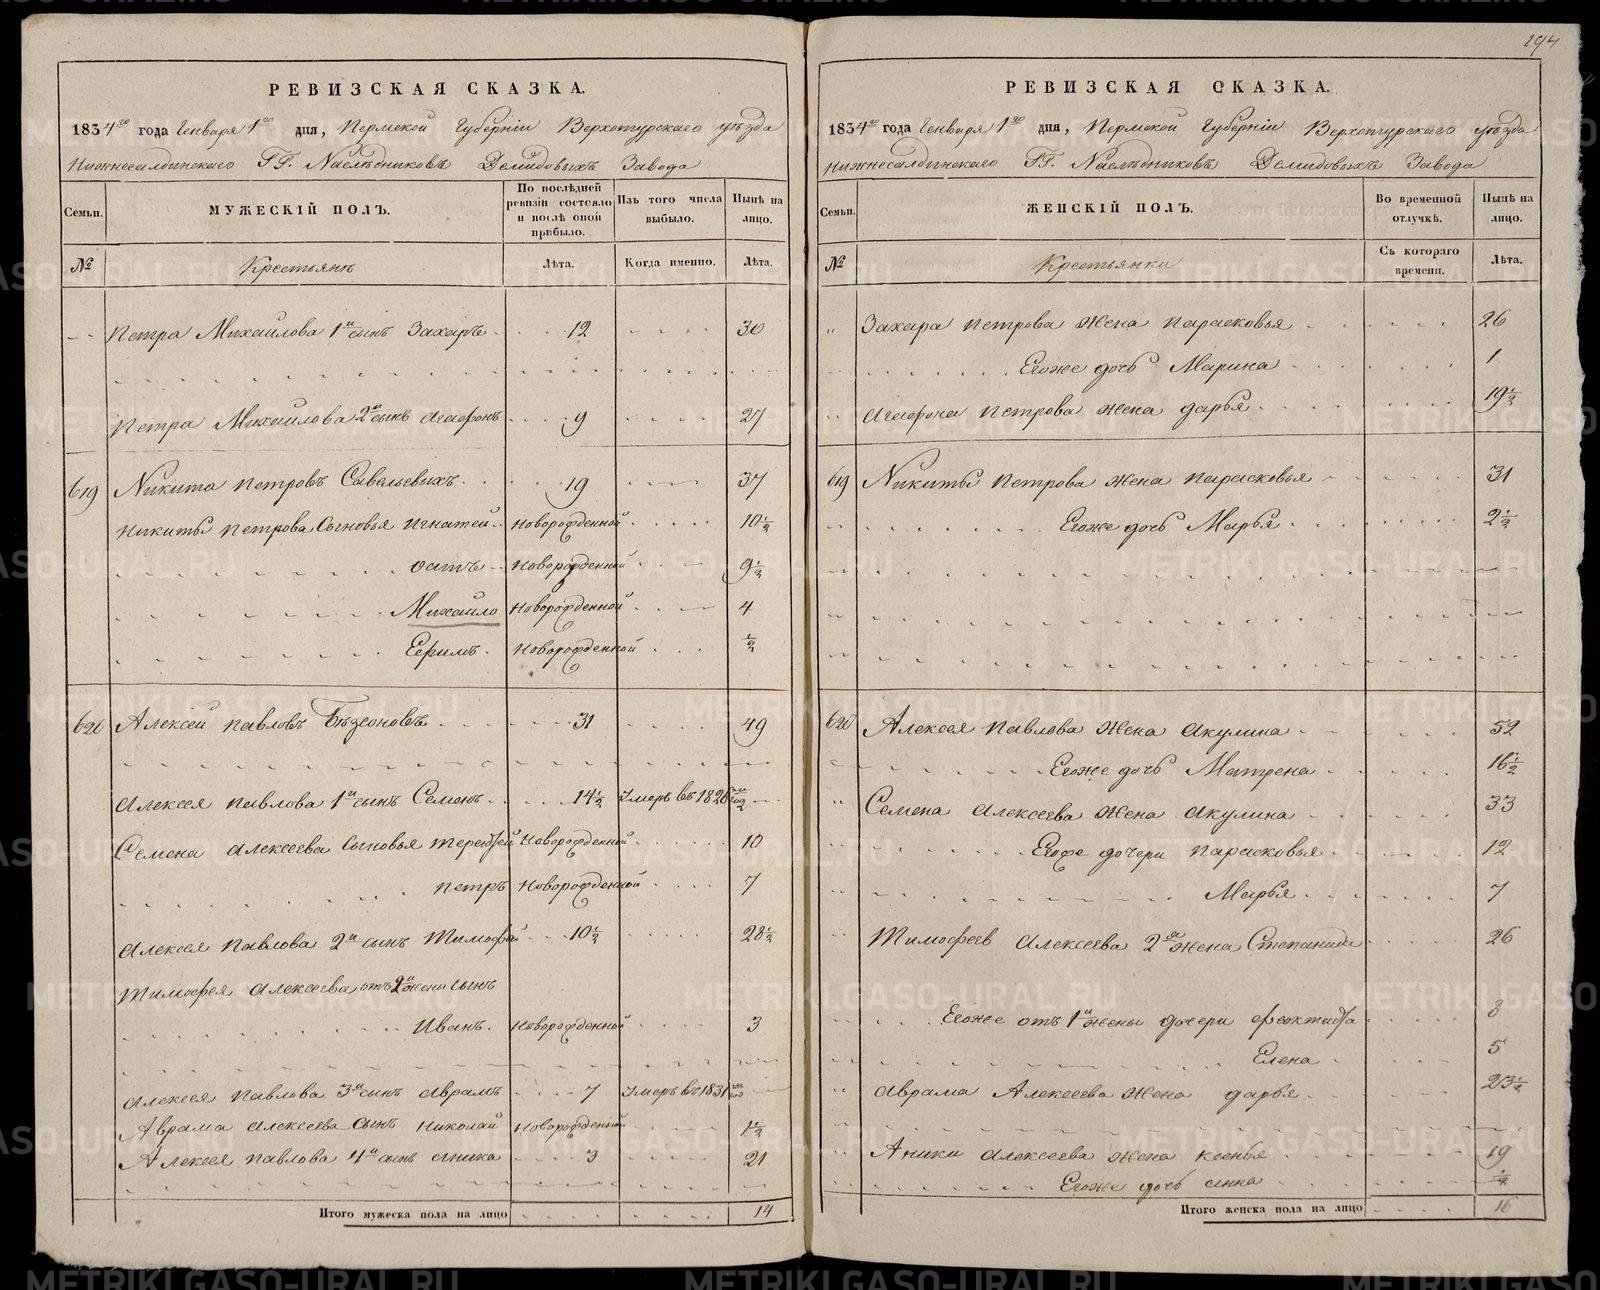 194
РЕВИЗСКАЯ СКАЗКА.
1834го года Генваря 1го дня, Пермской Губернiи Верхотурскаго уѣзда
Нижнесалдинскаго ГГ. Наслѣдниковъ Демидовыхъ Завода
Семьи. МУЖЕСКIЙ ПОЛЪ. По послѣдней ревизiи состояло и послѣ оной прибыло. Изъ того числа выбыло. Нынѣ на лицо.
№ Крестьянъ Лѣта. Когда именно. Лѣта.
Петра Михайлова 1й сынъ Захаръ 12 30
Петра Михайлова 2й сынъ Агафонъ 9 27
619 Никита Петровъ Савельевыхъ 19 37
Никиты Петрова Сыновья Игнатей Новорожденной 10½
Новорожденной 9½
Михайло Новорожденной 4
Ефимъ Новорожденной ½
620 Алексей Павловъ 31 49
Алексея Павлова 1й сынъ Семенъ 14½ Умеръ въ 1826 году
Семена Алексеева Сыновья Терентей Новорожденной 10
Петръ Новорожденной 7
Алексея Павлова 2й сынъ Тимофей 10½ 28½
Тимофея Алексеева отъ 2й жены сынъ
Иванъ Новорожденной 3
Алексея Павлова 3й сынъ Аврамъ 7 Умеръ въ 1831 году
Аврама Алексеева сынъ Николай Новорожденной
Алексея Павлова 4й сынъ Аника 3 21
Итого мужеска пола на лицо 14
РЕВИЗСКАЯ СКАЗКА.
1834го года Генваря 1го дня, Пермской Губернiи Верхотурскаго уѣзда
Нижнесалдинскаго ГГ. Наслѣдниковъ Демидовыхъ Завода
Семьи. ЖЕНСКIЙ ПОЛЪ. Во временной отлучкѣ. Нынѣ на лицо.
№ Крестьянки Съ котораго времени. Лѣта.
Захара Петрова жена Парасковья 26
Егоже дочь Марина 1
Агафона Петрова жена Дарья 19½
619 Никиты Петрова жена Парасковья 31
Егоже дочь Марья 2½
620 Алексея Павлова жена Акулина 52
Егоже дочь Матрена 16½
Семена Алексеева жена Акулина 33
Егоже дочери Парасковья 12
Марья 7
Тимофеев Алексеева 2я жена Степанида 26
Егоже отъ 1й жены дочери Феоктиста 8
Елена 5
Аврама Алексеева жена Дарья 23½
Аники Алексеева жена Ксенья 19
Егоже дочь Анна
Итого женска пола на лицо 16
METRIKI.GASO-URAL.RU